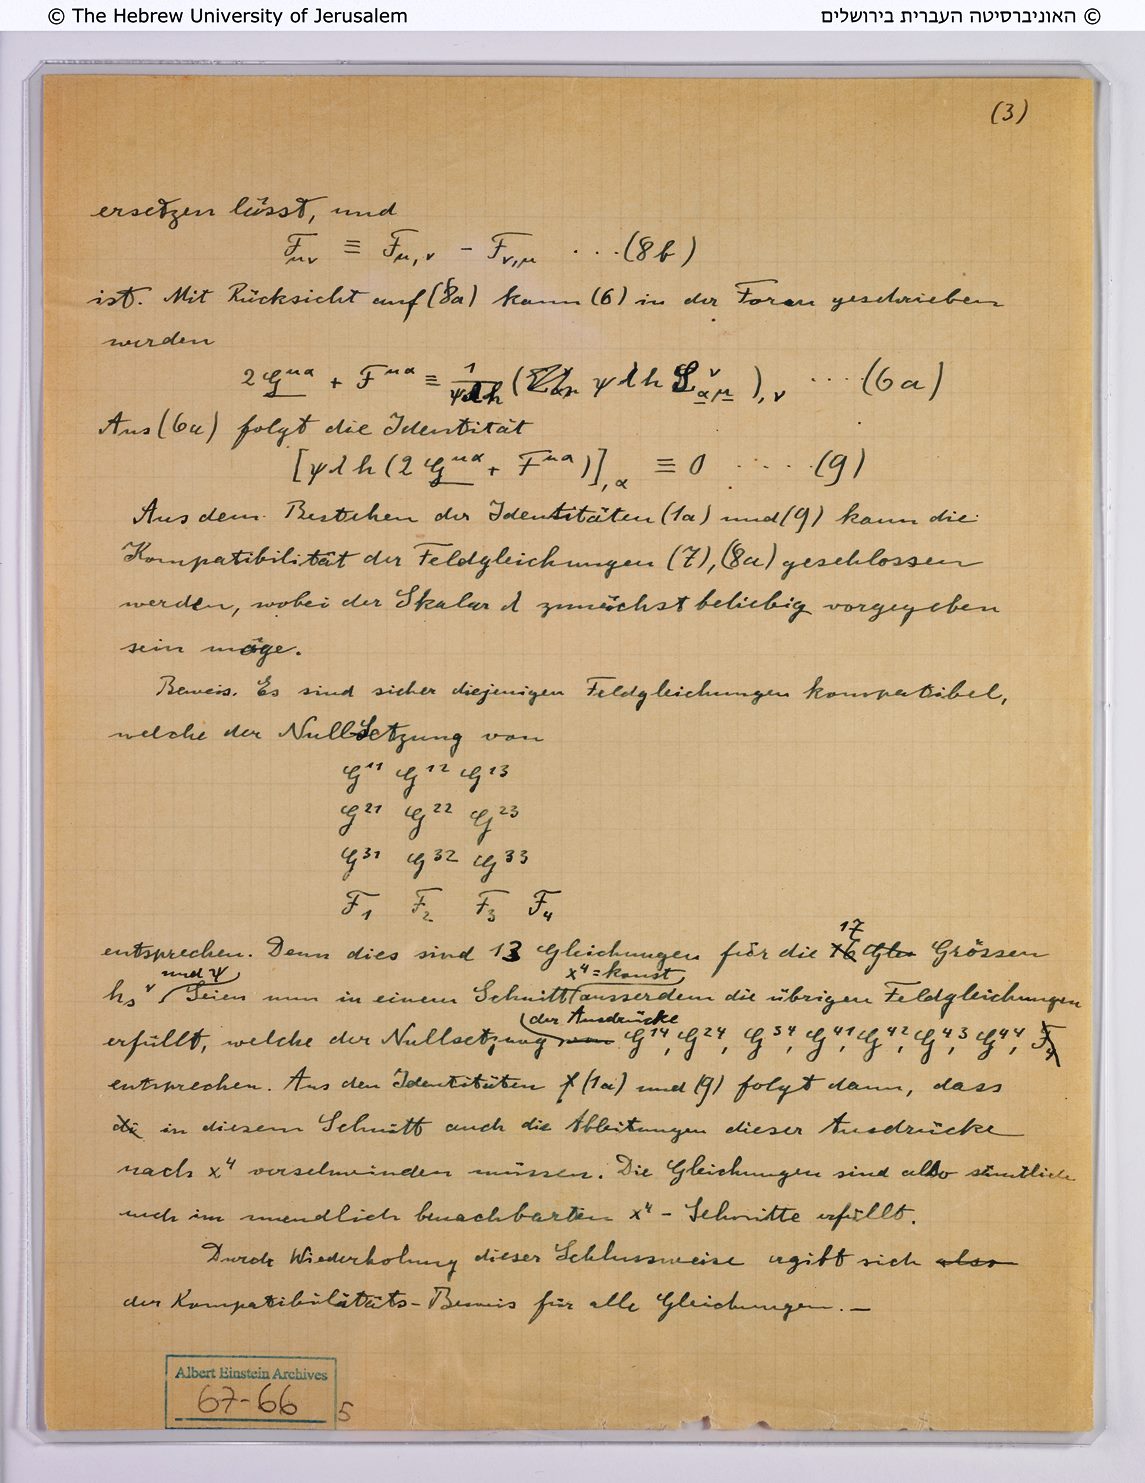 © The Hebrew University of Jerusalem
© האוניברסיטה העברית בירושלים
(3)
ersetzen lässt, und
F_μν ≡ F_μ,ν − F_ν,μ · · · (8b)
ist. Mit Rücksicht auf (8a) kann (6) in der Form geschrieben
werden
2 G^μα + F^μα ≡ 1/ψλh ( ψ λ h L^ν_αμ ),ν · · · (6a)
Aus (6a) folgt die Identität
[ψ λ h (2 G^μα + F^μα)],α ≡ 0 · · · · · (9)
Aus dem Bestehen der Identitäten (1a) und (9) kann die
Kompatibilität der Feldgleichungen (7), (8a) geschlossen
werden, wobei der Skalar λ zunächst beliebig vorgegeben
sein möge.
Beweis. Es sind sicher diejenigen Feldgleichungen kompatibel,
welche der Nullsetzung von
G^11 G^12 G^13
G^21 G^22 G^23
G^31 G^32 G^33
F_1 F_2 F_3 F_4
17
entsprechen. Denn dies sind 13 Gleichungen für die 16 Grössen
und ψ x^4 = konst
h_s^ν. Seien nun in einem Schnitt ausserdem die übrigen Feldgleichungen
der Ausdrücke
erfüllt, welche der Nullsetzung von G^14, G^24, G^34, G^41, G^42, G^43, G^44, F_4
entsprechen. Aus den Identitäten (1a) und (9) folgt dann, dass
di in diesem Schnitt auch die Ableitungen dieser Ausdrücke
nach x^4 verschwinden müssen. Die Gleichungen sind also sämtlich
auch im unendlich benachbarten x^4 - Schnitte erfüllt.
Durch Wiederholung dieser Schlussweise ergibt sich also
der Kompatibilitäts-Beweis für alle Gleichungen. —
Albert Einstein Archives
67-66
5